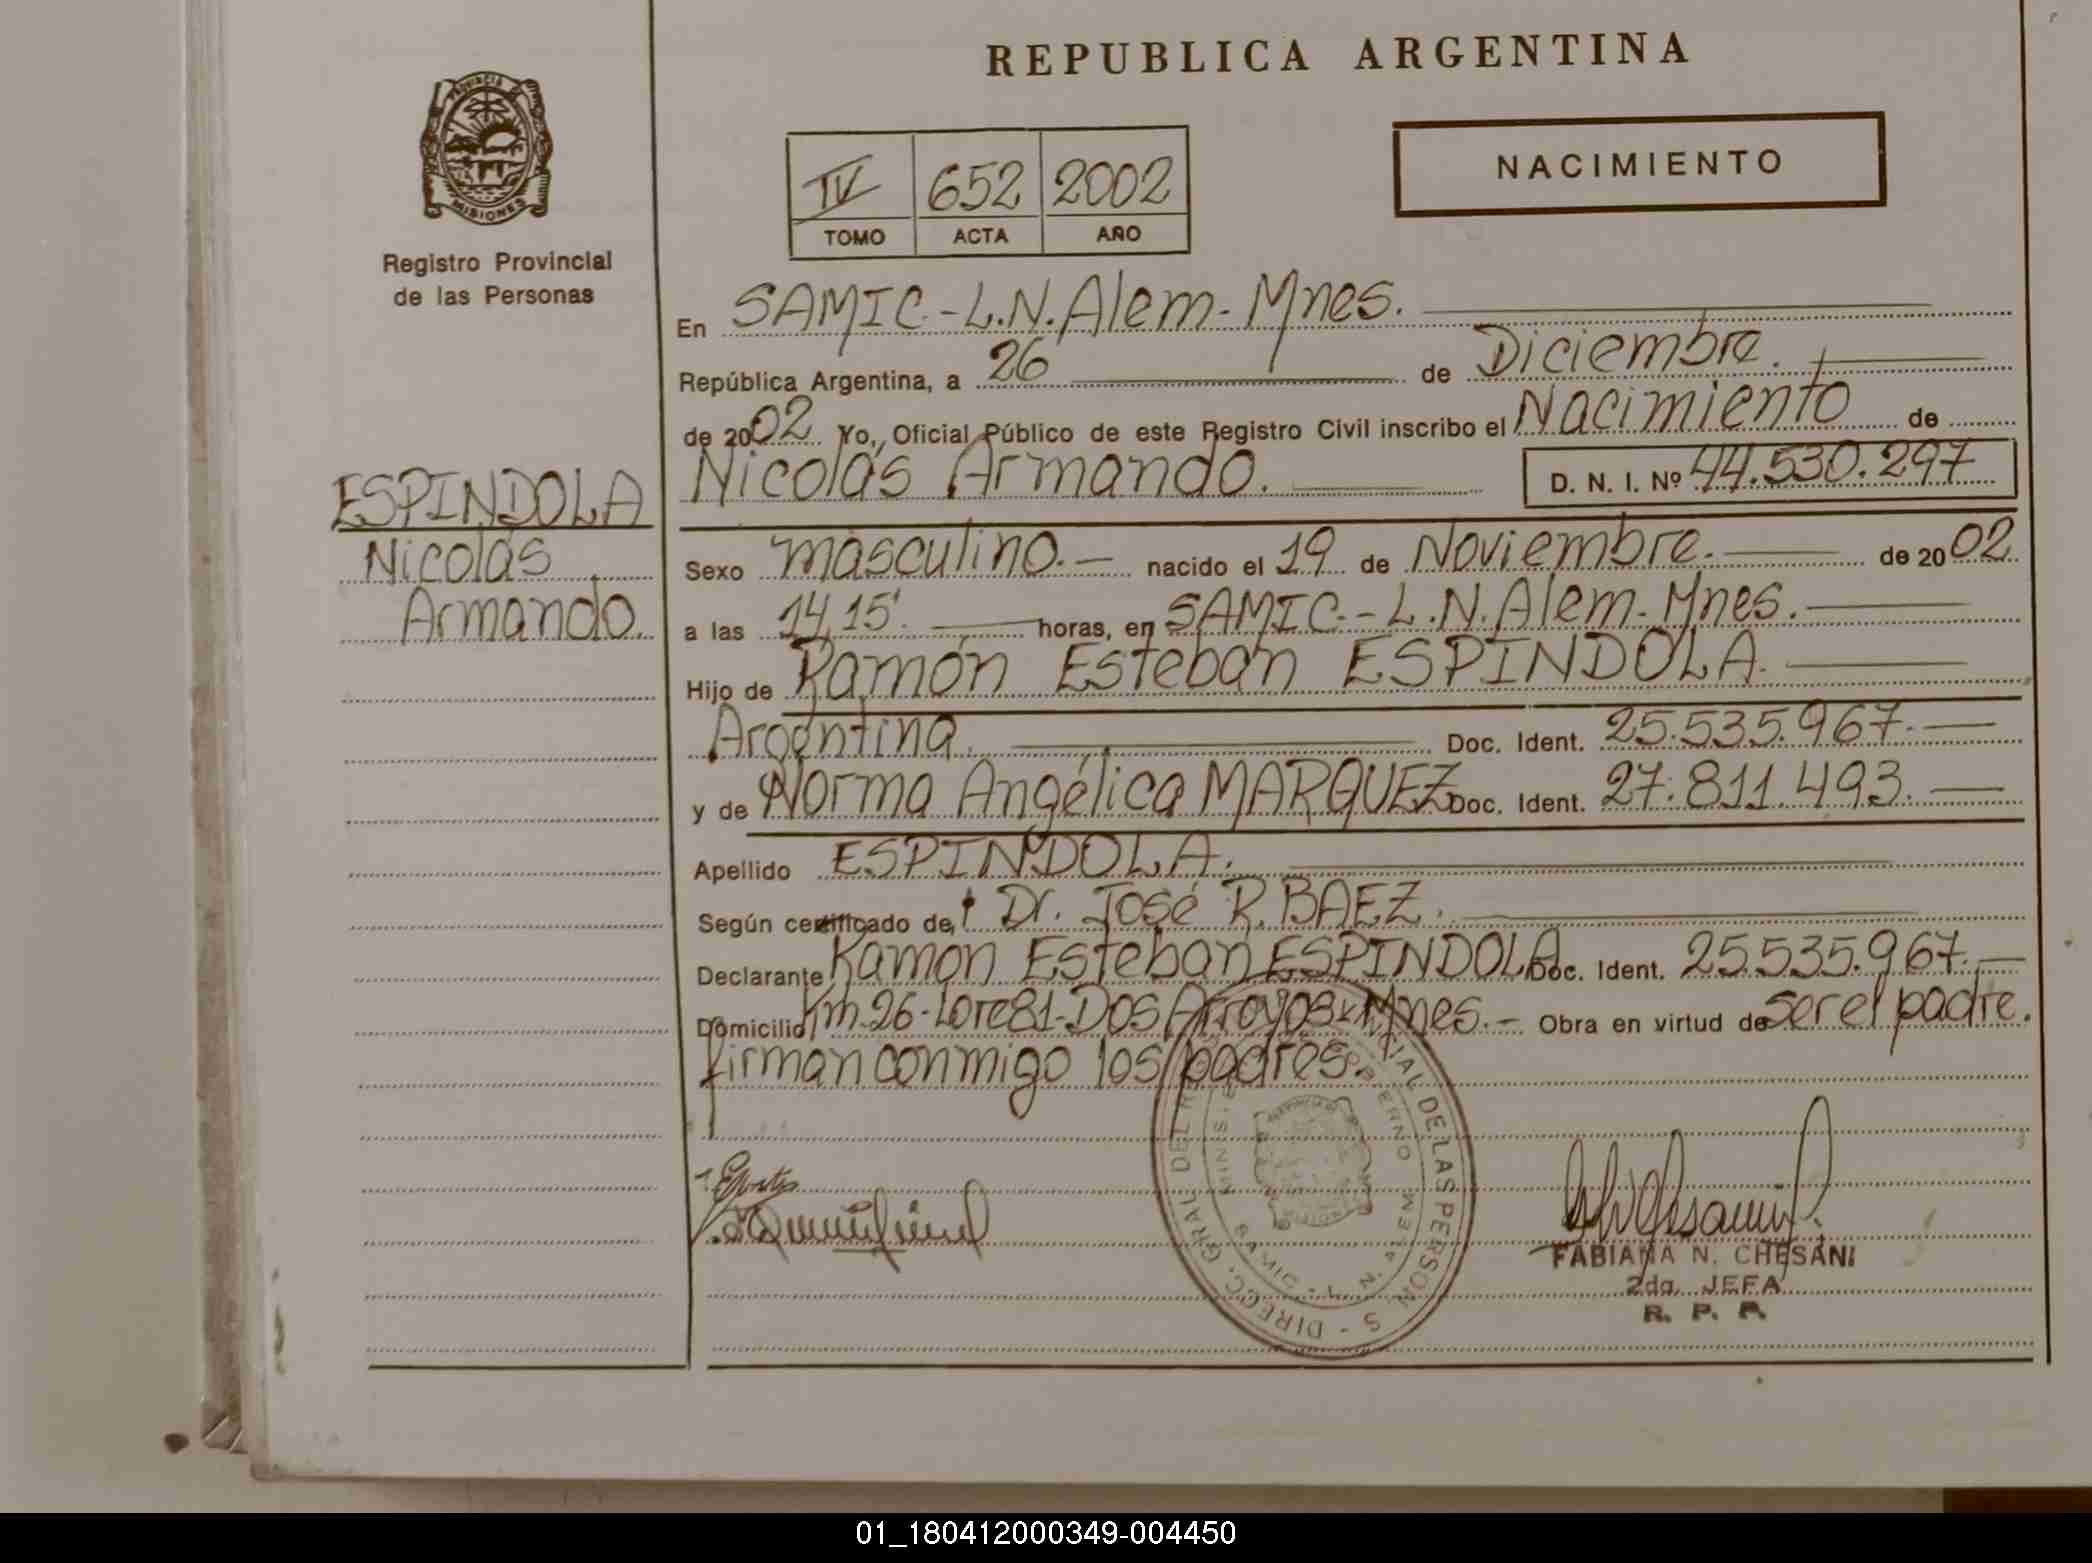 REPUBLICA ARGENTINA
PROVINCIA DE MISIONES
Registro Provincial
de las Personas
IV 652 2002
TOMO ACTA AÑO
NACIMIENTO
En SAMIC.-L.N.Alem-Mnes.
República Argentina, a 26 de Diciembre.
de 2002 Yo, Oficial Público de este Registro Civil inscribo el Nacimiento de
Nicolás Armando. D. N. I. Nº 44.530.297
ESPINDOLA
Nicolás
Armando.
Sexo masculino.- nacido el 19 de Noviembre. de 2002.
a las 14,15'. horas, en SAMIC.-L.N.Alem-Mnes.
Hijo de Ramón Esteban ESPINDOLA.
Argentina. Doc. Ident. 25.535.967.-
y de Norma Angélica MARQUEZ Doc. Ident. 27.811.493.-
Apellido ESPINDOLA.
Según certificado de, Dr. José R. BAEZ.
Declarante Ramón Esteban ESPINDOLA Doc. Ident. 25.535.967.-
Domicilio Km.26-Lote81-Dos Arroyos-Mnes.- Obra en virtud de ser el padre.
firman conmigo los padres.
DIRECC. GRAL DEL REGISTRO PROVINCIAL DE LAS PERSONAS
SAMIC - L. N. ALEM
FABIANA N. CHESANI
2da. JEFA
R. P. P.
01_180412000349-004450